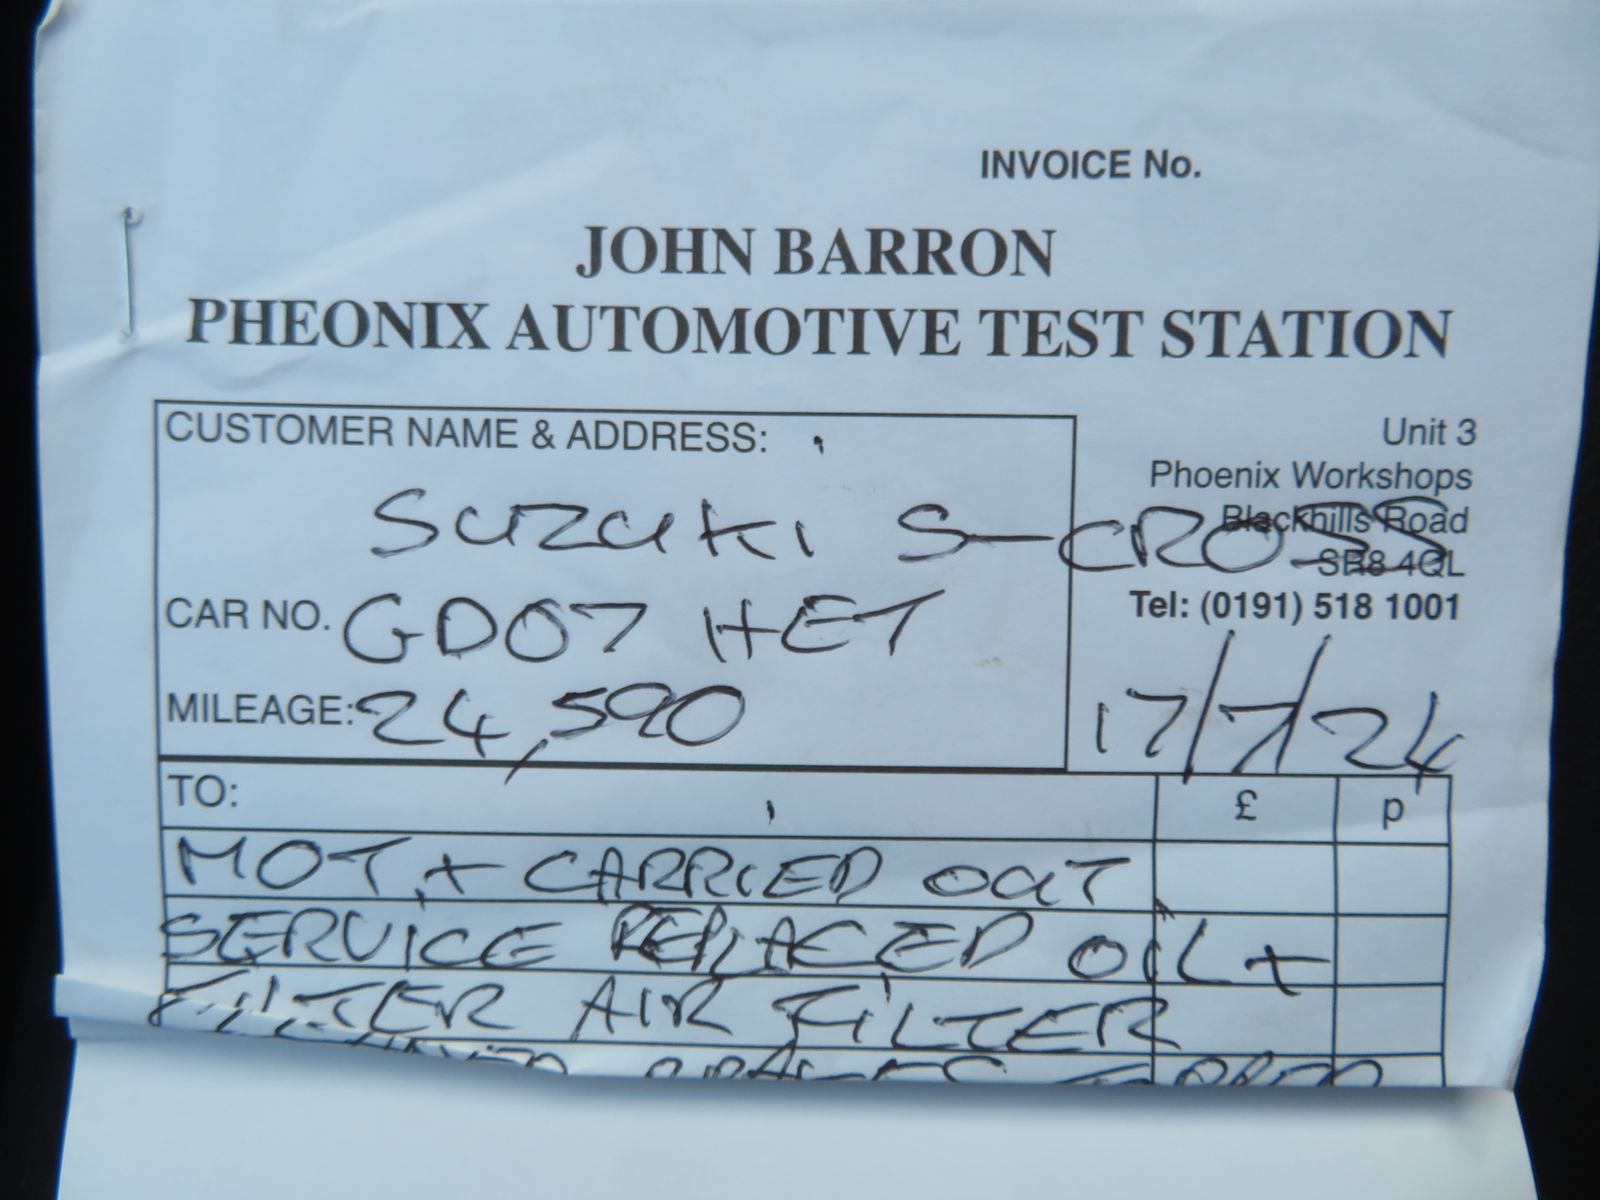 INVOICE No.
JOHN BARRON
PHEONIX AUTOMOTIVE TEST STATION
CUSTOMER NAME & ADDRESS:
Suzuki S-CROSS
Unit 3
Phoenix Workshops
Blackhills Road
SR8 4QL
Tel: (0191) 518 1001
CAR NO. GD07 HET
MILEAGE: 24,590
17/7/24
TO: £ p
MOT + CARRIED OUT
SERVICE REPLACED OIL +
FILTER AIR FILTER